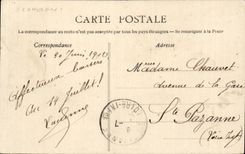 CARTE POSTALE
La correspondance au recto n'est pas acceptée par tous les pays étrangers - Se renseigner à la Poste
Correspondance
Adresse
Le 30 Juin 1912
Affectueux baisers
Au 14 Juillet !
Madame Chauvet
Avenue de la Gare
Ste Pazanne